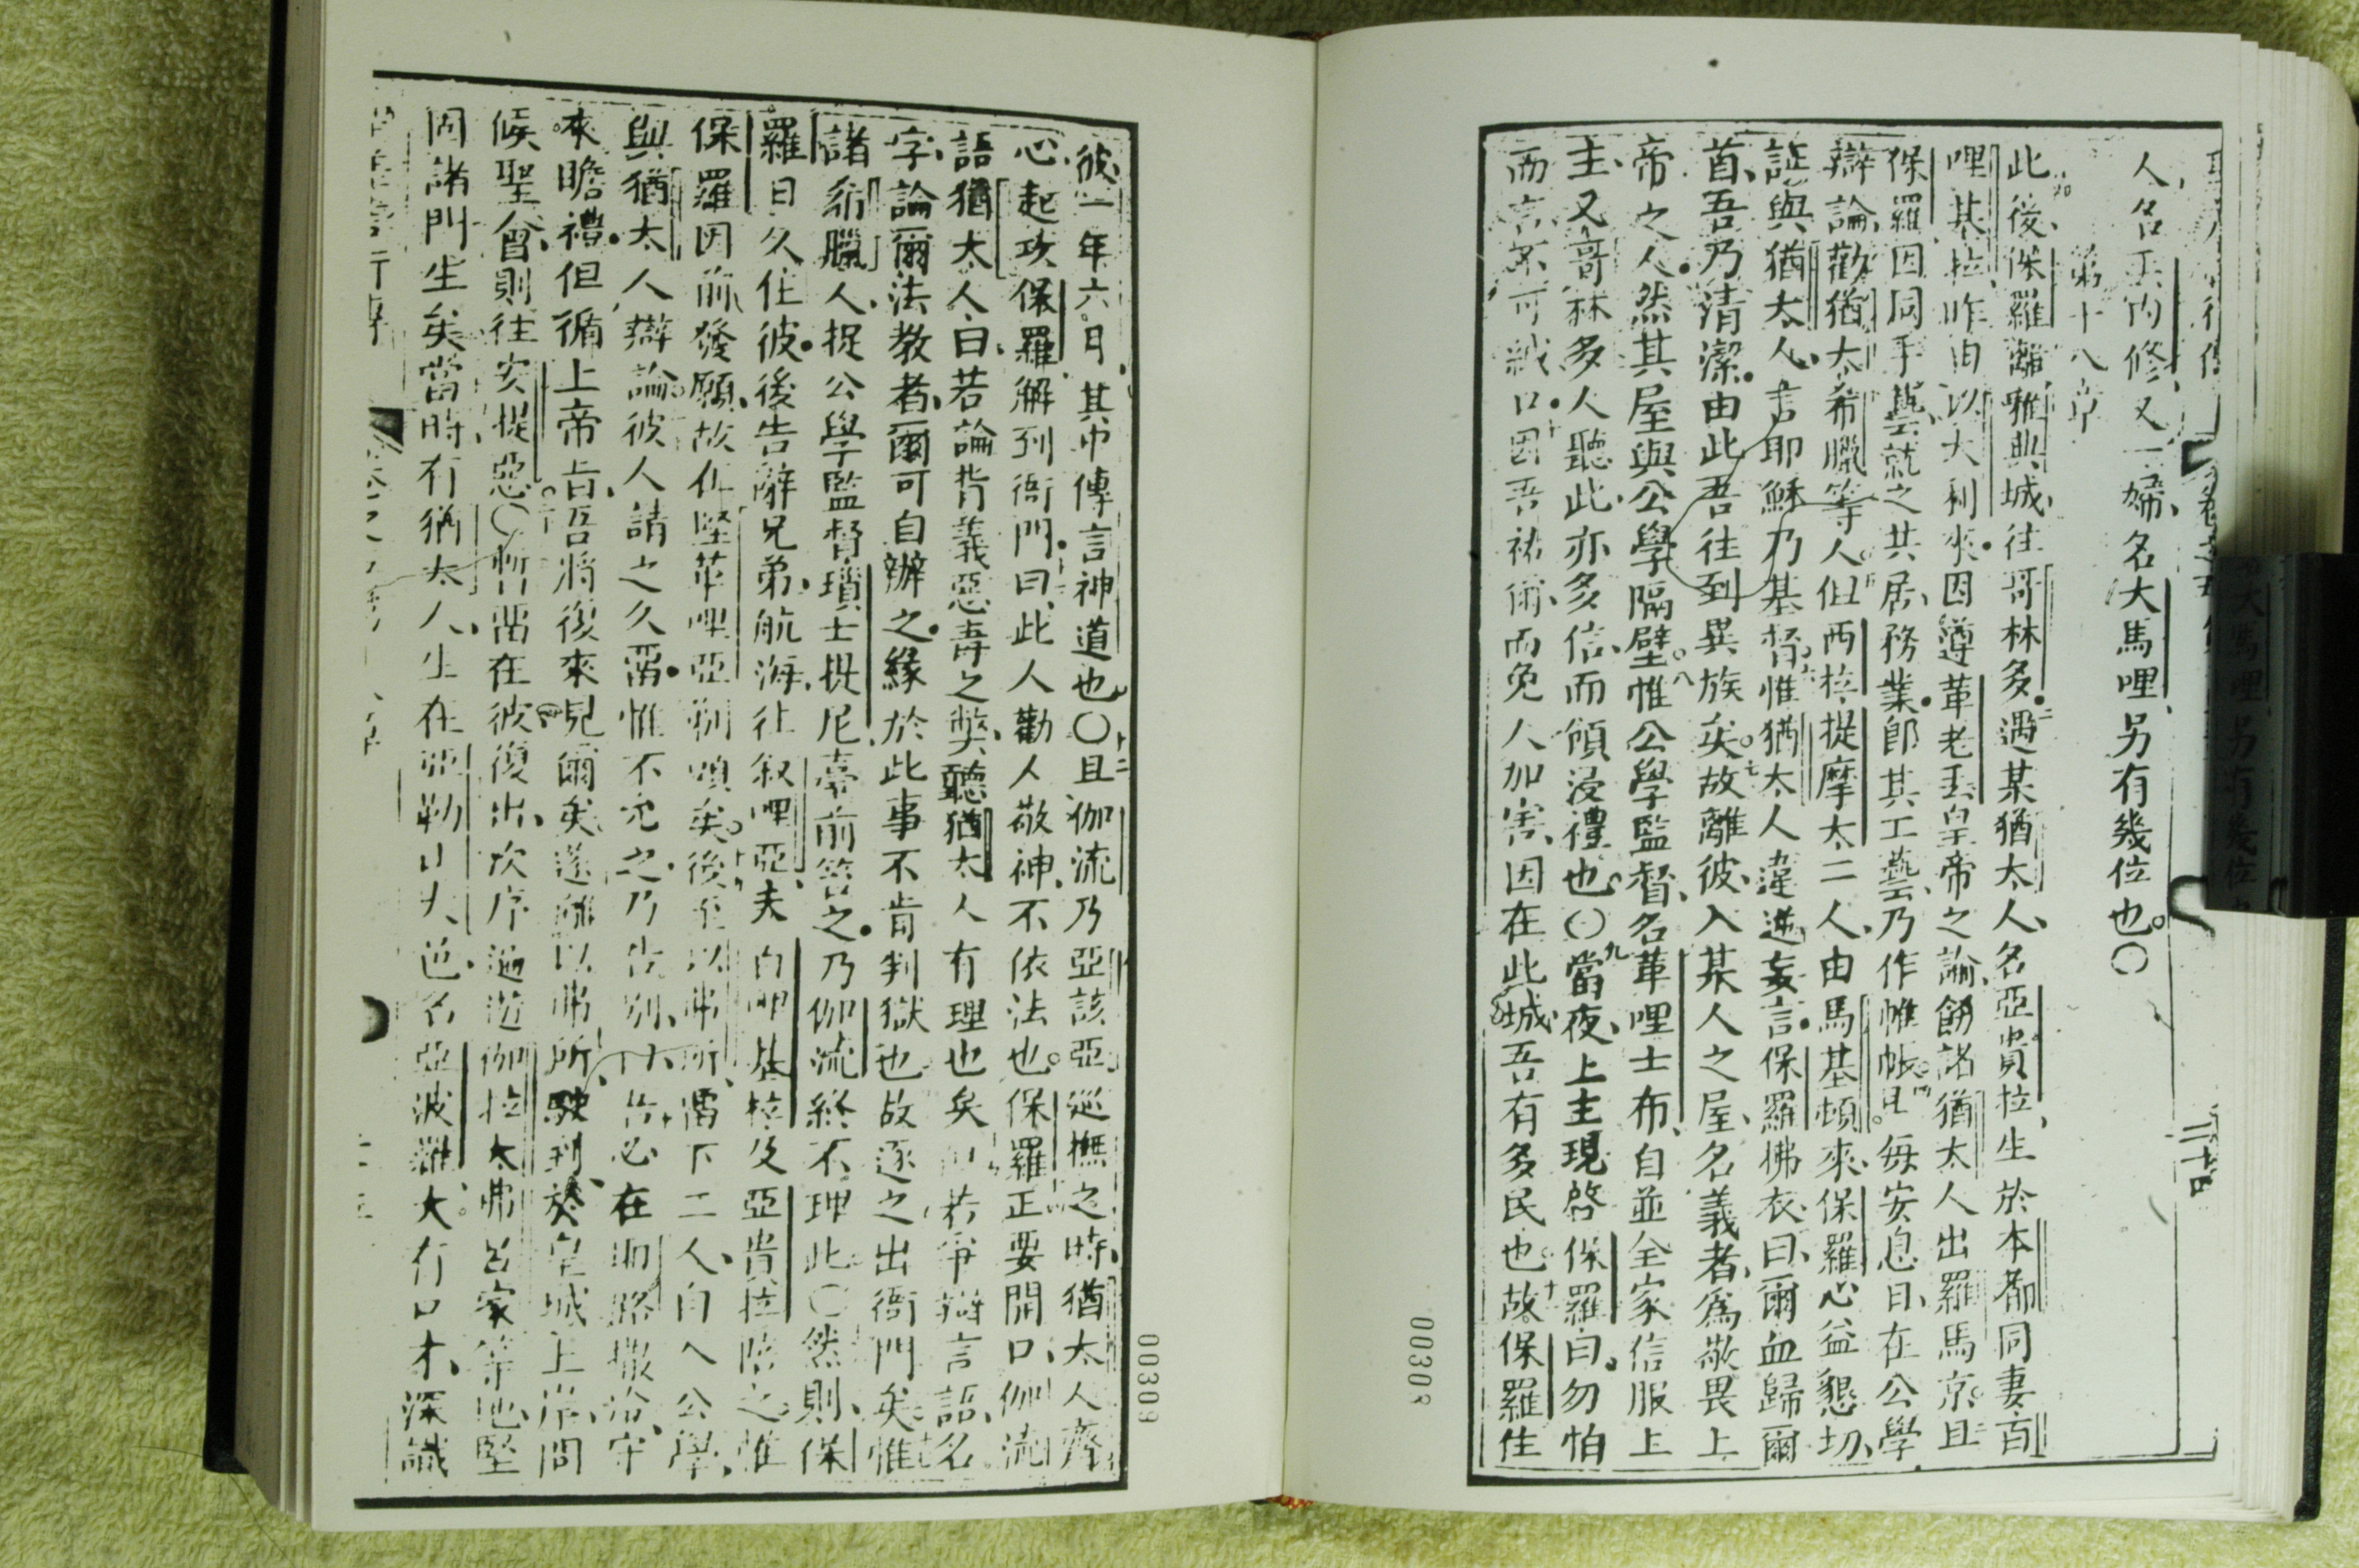 人名氐的修又一婦名大馬哩另有幾位也〇
第十八章
此後保羅離雅典城往哥林多遇某猶太人名亞貴拉生於本都同妻百
哩基拉昨由以大利來因遵革老丟皇帝之諭飭諸猶太人出羅馬京且
保羅因同手藝就之共居務業郎其工藝乃作帷帳且每安息日在公學
辯論勸猶太希臘等人但西拉提摩太二人由馬基頓來保羅心益懇切
証與猶太人言耶穌乃基督惟猶太人違逆妄言保羅拂衣曰爾血歸爾
首吾乃清潔由此吾往到異族矣故離彼入某人之屋名義者為敬畏上
帝之人然其屋與公學隔壁惟公學監督名革哩士布自並全家信服上
主又哥林多人聽此亦多信而領浸禮也〇當夜上主現啓保羅曰勿怕
而言不可緘口因吾祐爾而免人加害因在此城吾有多民也故保羅住
00308
彼一年六月其中傳言神道也〇且伽流乃亞該亞巡撫之時猶太人齊
心起攻保羅解到衙門曰此人勸人敬神不依法也保羅正要開口伽流
語猶太人曰若論背義惡毒之弊聽猶太人有理也矣但若爭辯言語名
字論爾法教者爾可自辦之緣於此事不肯判獄也故逐之出衙門矣惟
諸希臘人捉公學監督瑣士提尼臺前笞之乃伽流終不理此〇然則保
羅日久住彼後告辭兄弟航海往叙哩亞夫百哩基拉及亞貴拉陪之惟
保羅因前發願故在堅革哩亞剃頭矣後至以弗所留下二人自入公學
與猶太人辯論彼人請之久留惟不允之乃告別以言必在耶路撒冷守
來瞻禮但循上帝旨吾將復來見爾矣遂離以弗所駛到於皇城上岸問
候聖會則往安提惡〇暫留在彼復出次序遊遊伽拉太弗呂家等地堅
固諸門生矣當時有猶太人生在亞勒山大邑名亞波羅大有口才深識
00309